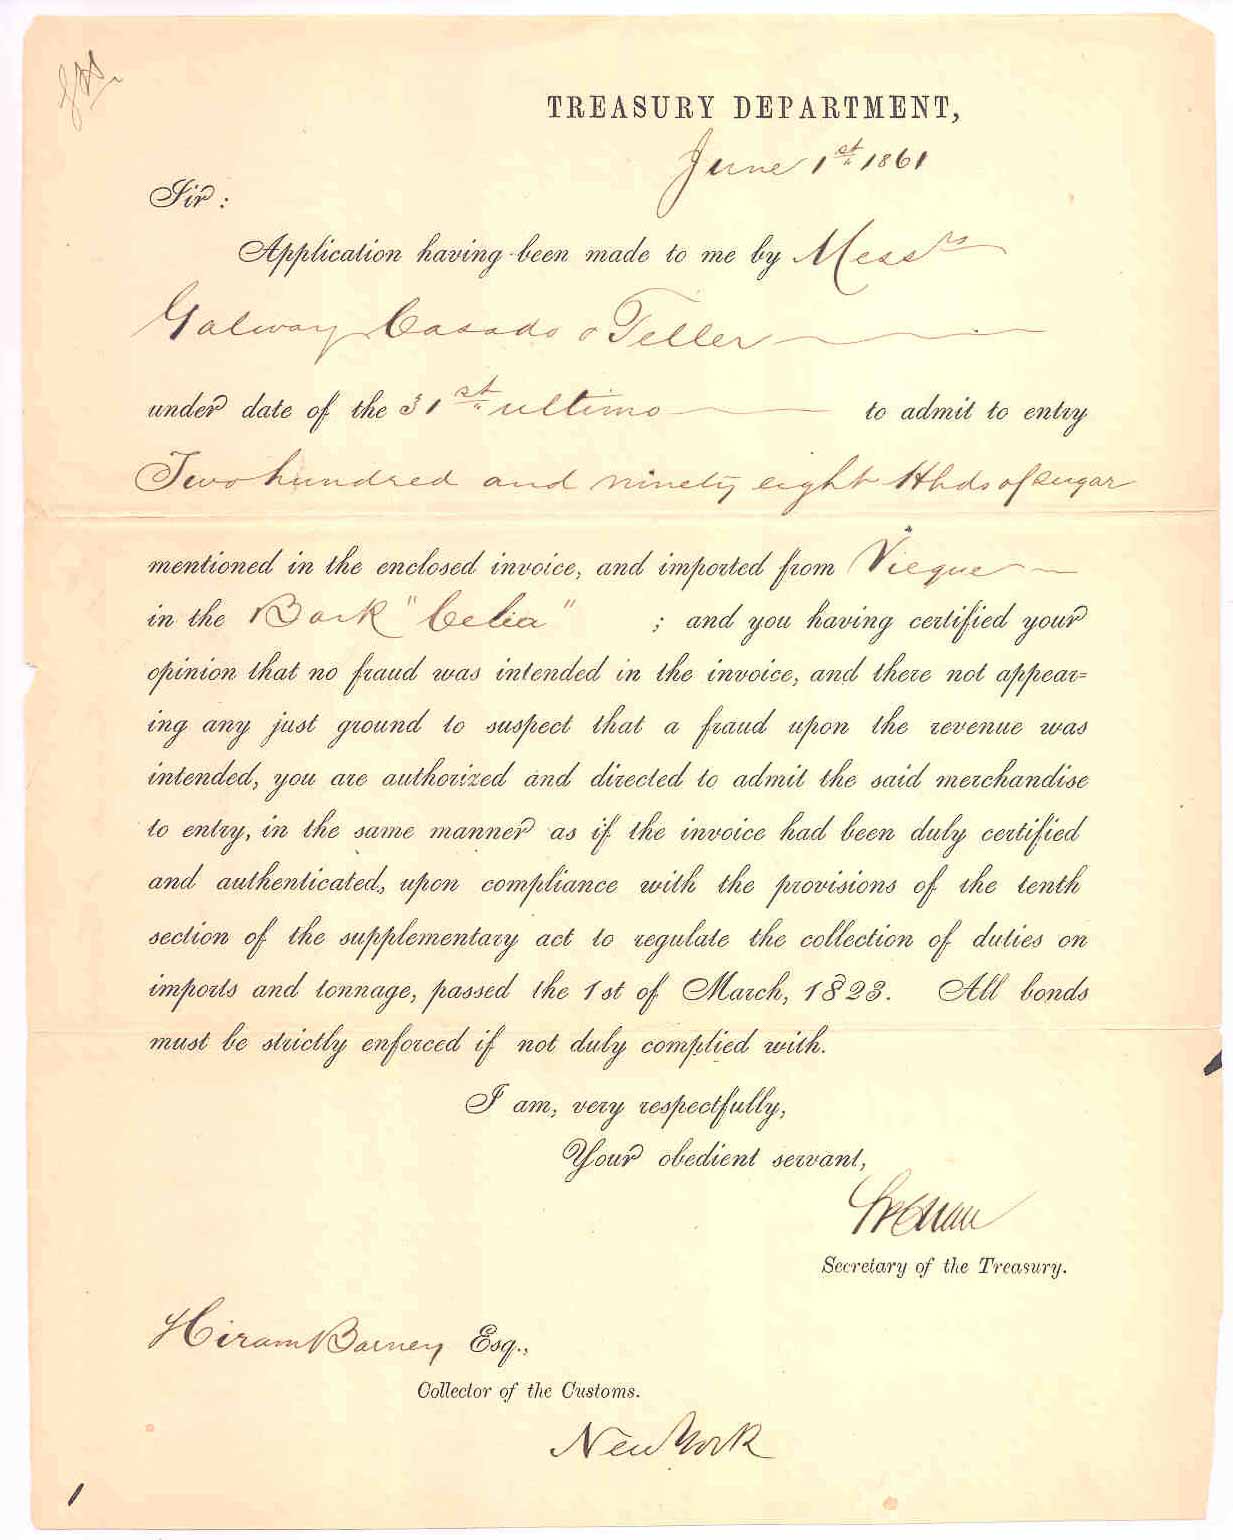 TREASURY DEPARTMENT,
June 1st 1861
Sir:
Application having been made to me by Messrs
Galway Casado & Teller
under date of the 31st ultimo to admit to entry
Two hundred and ninety eight Hhds of sugar
mentioned in the enclosed invoice, and imported from Vieque
in the Bark "Celia" ; and you having certified your
opinion that no fraud was intended in the invoice, and there not appear=
ing any just ground to suspect that a fraud upon the revenue was
intended, you are authorized and directed to admit the said merchandise
to entry, in the same manner as if the invoice had been duly certified
and authenticated, upon compliance with the provisions of the tenth
section of the supplementary act to regulate the collection of duties on
imports and tonnage, passed the 1st of March, 1823. All bonds
must be strictly enforced if not duly complied with.
I am, very respectfully,
Your obedient servant,
Secretary of the Treasury.
Hiram Barney Esq.,
Collector of the Customs.
New York